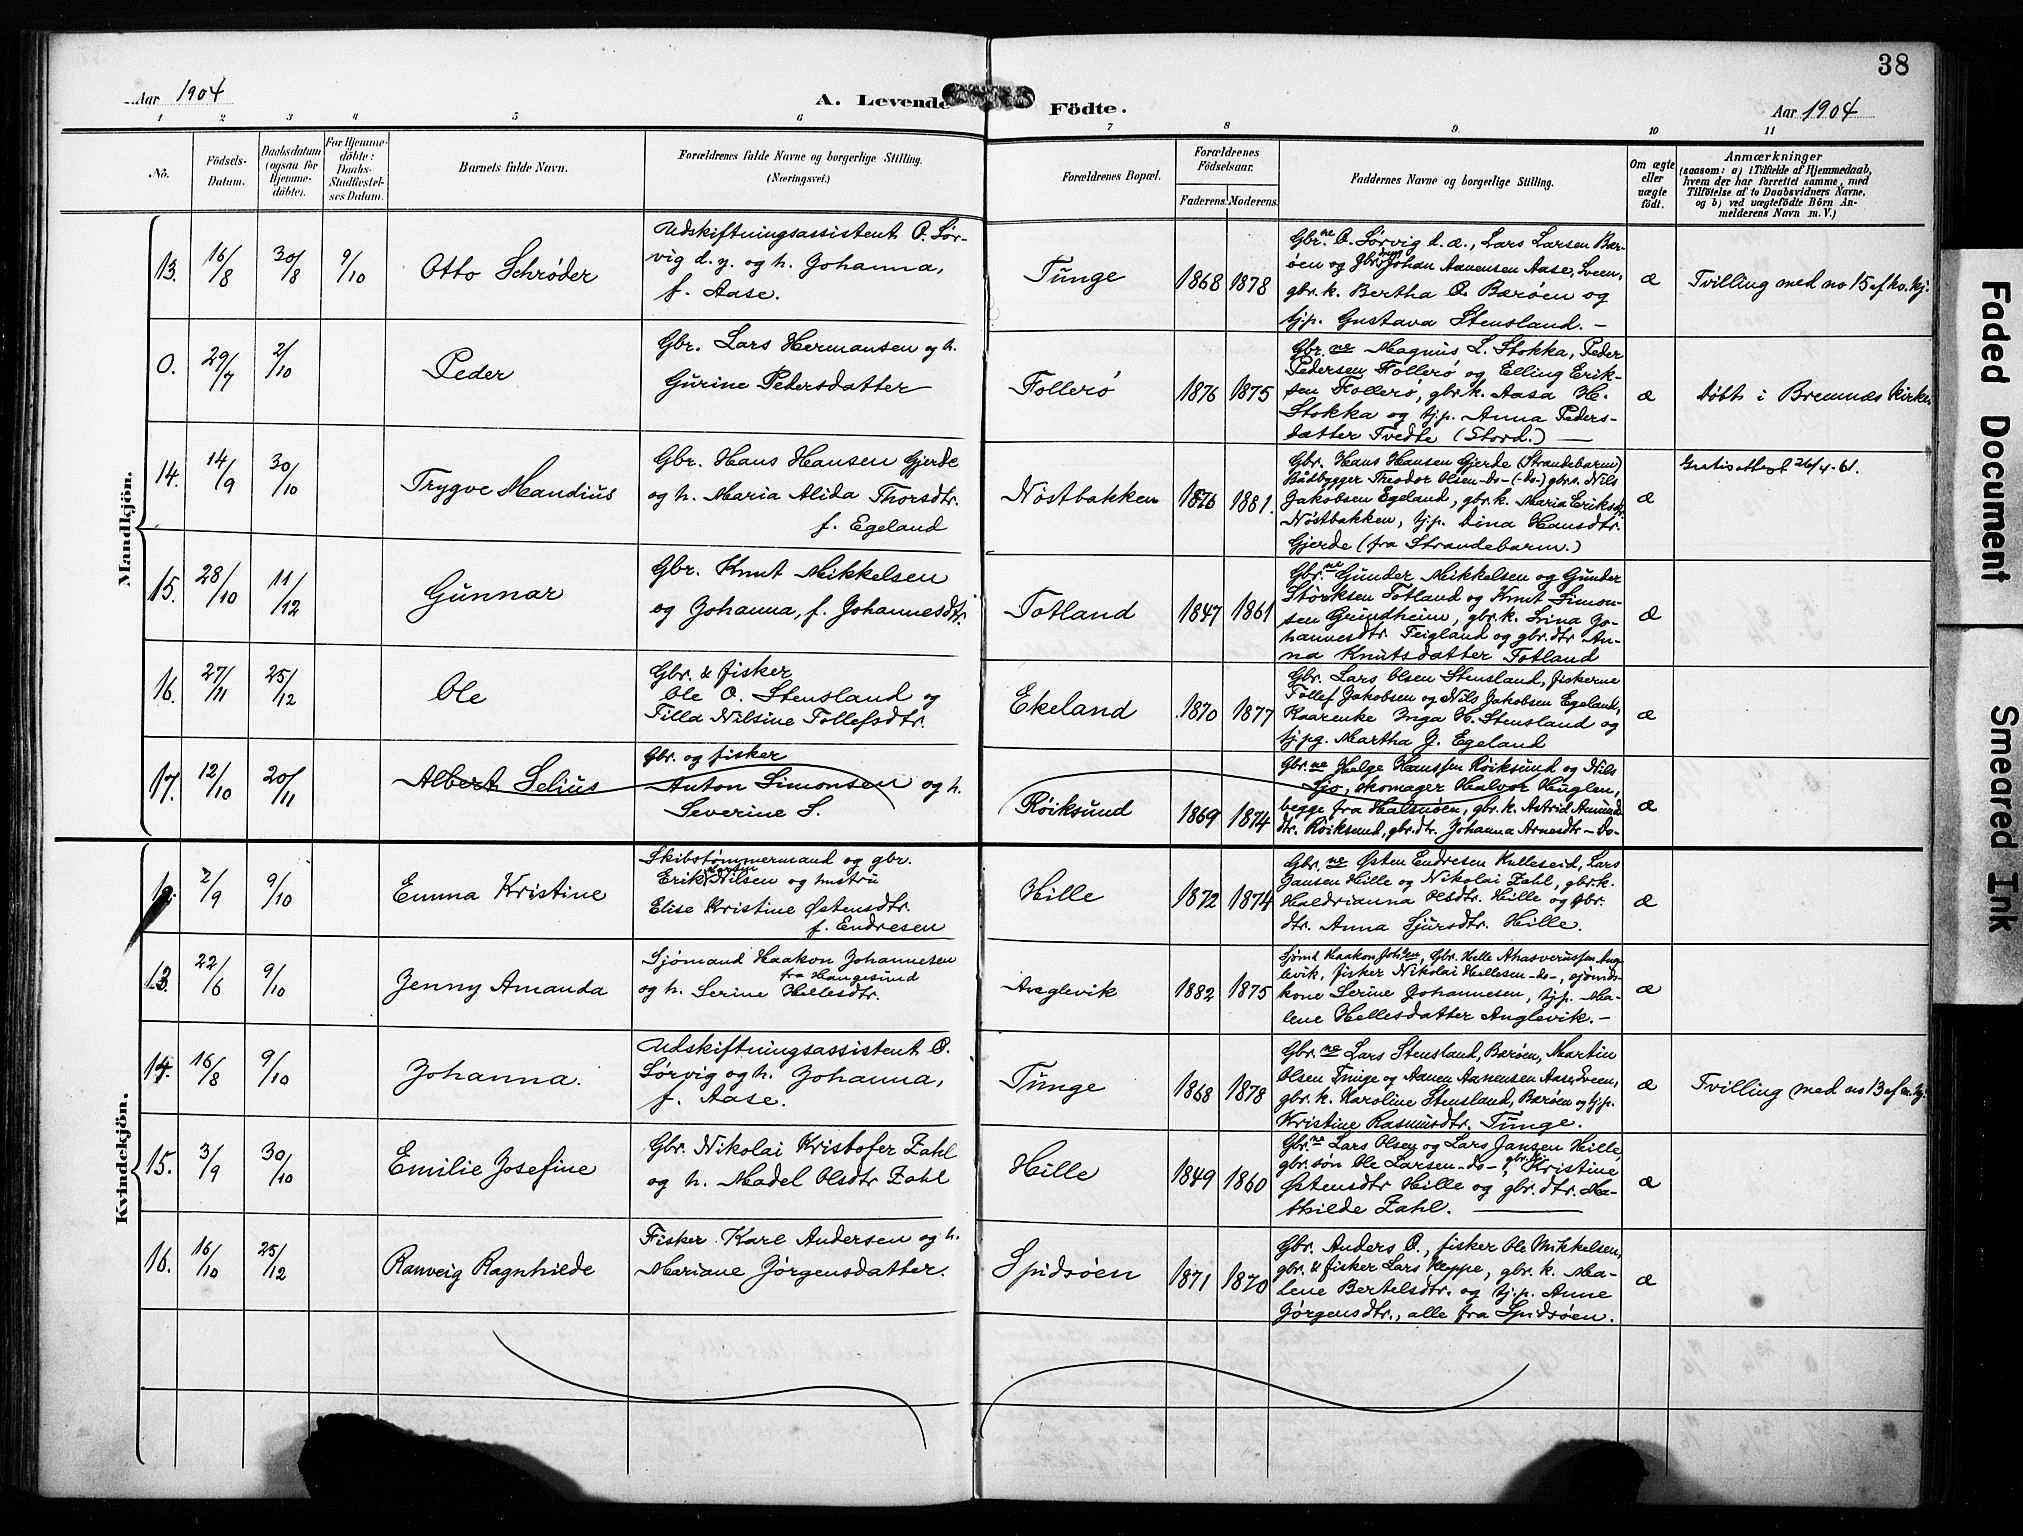 38
Aar 1904
A. Levende Födte.
Aar 1904
1 2 3 4 5 6 7 8 9 10 11
No.
Födsels-
Datum.
Daabsdatum
(ogsaa for
Hjemme-
döbte).
For Hjemme-
döbte:
Daabs-
Stadfæstel-
ses Datum.
Barnets fulde Navn.
Forældrenes fulde Navne og borgerlige Stilling.
(Næringsvei.)
Forældrenes Bopæl.
Forældrenes
Födselsaar.
Faderens. Moderens.
Faddernes Navne og borgerlige Stilling.
Om ægte
eller
uægte
födt.
Anmærkninger
(saasom: a) i Tilfælde af Hjemmedaab,
hvem der har forrettet samme, med
Tilföielse af to Daabsvidners Navne,
og b) ved uægtefödte Börn An-
melderens Navn m. V.)
Mandkjön.
13. 16/8 30/8 9/10 Otto Schrøder
Udskiftningsassistent O. Sør-
vig d. y. og h. Johanna,
f. Aase.
Tunge 1868 1878
Gbr.ne O. Sørvig d. æ., Lars Larsen Bær-
øen og Gbrsøn Johan Aanensen Aase, Sveen,
gbr. k. Bertha O. Bærøen og
tj.p. Gustava Stensland. –
æ Tvilling med no 15 af kv. kj.
0. 29/7 2/10 Peder
Gbr. Lars Hermansen og h.
Gurine Pedersdatter
Follerø 1876 1875
Gbr. ne Magnus L. Stokka, Peder
Pedersen Follerø og Elling Erik-
sen Follerø, gbr. k. Aasa H.
Stokka og tj.p. Anna Peders-
datter Tvedte (Stord.) —
æ Døbt i Bremnæs Kirke
14. 14/9 30/10 Trygve Mandius
Gbr. Hans Hansen Gjerde
og h. Maria Alida Thorsdtr.
f. Egeland
Nøstbakken 1876 1881.
Gbr. Hans Hansen Gjerde (Strandebarm)
Bådbygger Theodor Olsen -do- (-do-) gbr.s. Nils
Jakobsen Egeland, gbr. k. Maria Eriksdtr.
Nøstbakken, tj.p. Dina Hansdtr.
Gjerde (fra Strandebarm.)
æ Gratis attest 26/4-61.
15. 28/10 11/12 Gunnar
Gbr. Knut Mikkelsen
og Johanna, f. Johannesdtr.
Totland 1847 1861
Gbr.ne Gunder Mikkelsen og Gunder
Størksen Totland og Knut Simon-
sen Grindheim, gbr. k. Jo-
hannesdtr. Teigland og gbr. dtr. An-
na Knutsdatter Totland
æ
16. 27/11 25/12 Ole
Gbr. & fisker
Ole O. Stensland og
Tilla Nilsine Tollefsdtr.
Ekeland 1870 1877
Gbr. Lars Olsen Stensland, fiskerne
Tollef Jakobsen og Nils Jakobsen Egeland,
Kaarenke Inga H. Stensland og
tj. pg. Martha J. Egeland
æ
17. 12/10 20/11 Albert Selius
Gbr. og fisker
Anton Simonsen og h.
Severine S.
Røiksund 1869 1874
Gbr. ne Helge Hanssen Røiksund og Nils
Sjo, skomager Halvor Huglen,
begge fra Halsnøen, gbr. k. Astrid Amunds-
dtr. Røiksund, gbr. dtr. Johanna Arnesdtr -do-
æ
Kvindekjön.
2/9 9/10 Emma Kristine
Skibstømmermand og gbr.
Erik Nilsen og hustru
Elise Kristine Østensdtr.
f. Endresen
Hille 1872 1874
Gbr. ne Østen Endresen Kulleseid, Lars
Jansen Hille og Nikolai Zahl, gbr. k.
Haldrianna Olsdtr. Hille og gbr.
dtr. Anna Sjursdtr. Hille.
æ
13. 22/6 9/10 Jenny Amanda
Sjømand Haakon Johannesen
fra Haugesund
og h. Serine Hellesdtr.
Anglevik 1882 1875
Sjømd Haakon Joh.sen, Gbr. Helle Ahasverussen Ang-
levik, fisker Nikolai Hellesen -do-, sjømds-
kone Serine Johannesen, tj.p. Ma-
lene Hellesdatter Anglevik. –
æ
14. 16/8 9/10 Johanna.
Udskiftningsassistent O.
Sørvig og h. Johanna,
f. Aase.
Tunge 1868 1878
Gbr. ne Lars Stensland, Bærøen, Martin
Olsen Tunge og Aanen Aanensen Aase, Sveen,
gbr. k. Karoline Stensland, Bærøen og tj.p.
Kristine Rasmusdtr. Tunge.
æ Tvilling med no 13 af m. kj.
15. 3/9 30/10 Emilie Josefine
Gbr. Nikolai Kristofer Zahl
og h. Madel Olsdtr Zahl
Hille 1849 1860
Gbr.ne Lars Olsen og Lars Jansen Hille,
gbr. søn Ole Larsen -do-, Kristine
Østensdtr Hille og gbr. dtr. Ma-
thilde Zahl. —
æ
16. 16/10 25/12 Ranveig Ragnhilde
Fisker Karl Andersen og h.
Mariane Jørgensdatter.
Spidsøen 1871 1870
Gbr. Anders O., fisker Ole Mikkelsen,
gbr. & fisker Lars Keppe, gbr. k. Ma-
lene Bertelsdtr. og tj.p. Anne
Jørgensdtr., alle fra Spidsøen.
æ
Faded Document
Smeared Ink